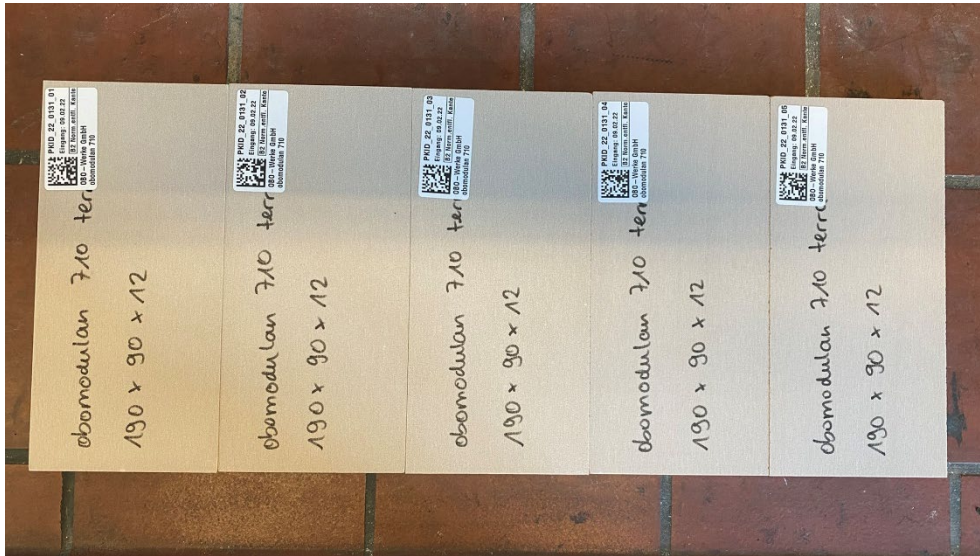 PKID_22_0131_01
Eingang: 09.02.22
B2 Norm.entfl. Kante
OBO-Werke GmbH
obomodulan 710
obomodulan 710
190 x 90 x 12
PKID_22_0131_02
Eingang: 09.02.22
B2 Norm.entfl. Kante
OBO-Werke GmbH
obomodulan 710
obomodulan 710
190 x 90 x 12
PKID_22_0131_03
Eingang: 09.02.22
B2 Norm.entfl. Kante
OBO-Werke GmbH
obomodulan 710
obomodulan 710
190 x 90 x 12
PKID_22_0131_04
Eingang: 09.02.22
B2 Norm.entfl. Kante
OBO-Werke GmbH
obomodulan 710
obomodulan 710
190 x 90 x 12
PKID_22_0131_05
Eingang: 09.02.22
B2 Norm.entfl. Kante
OBO-Werke GmbH
obomodulan 710
obomodulan 710
190 x 90 x 12